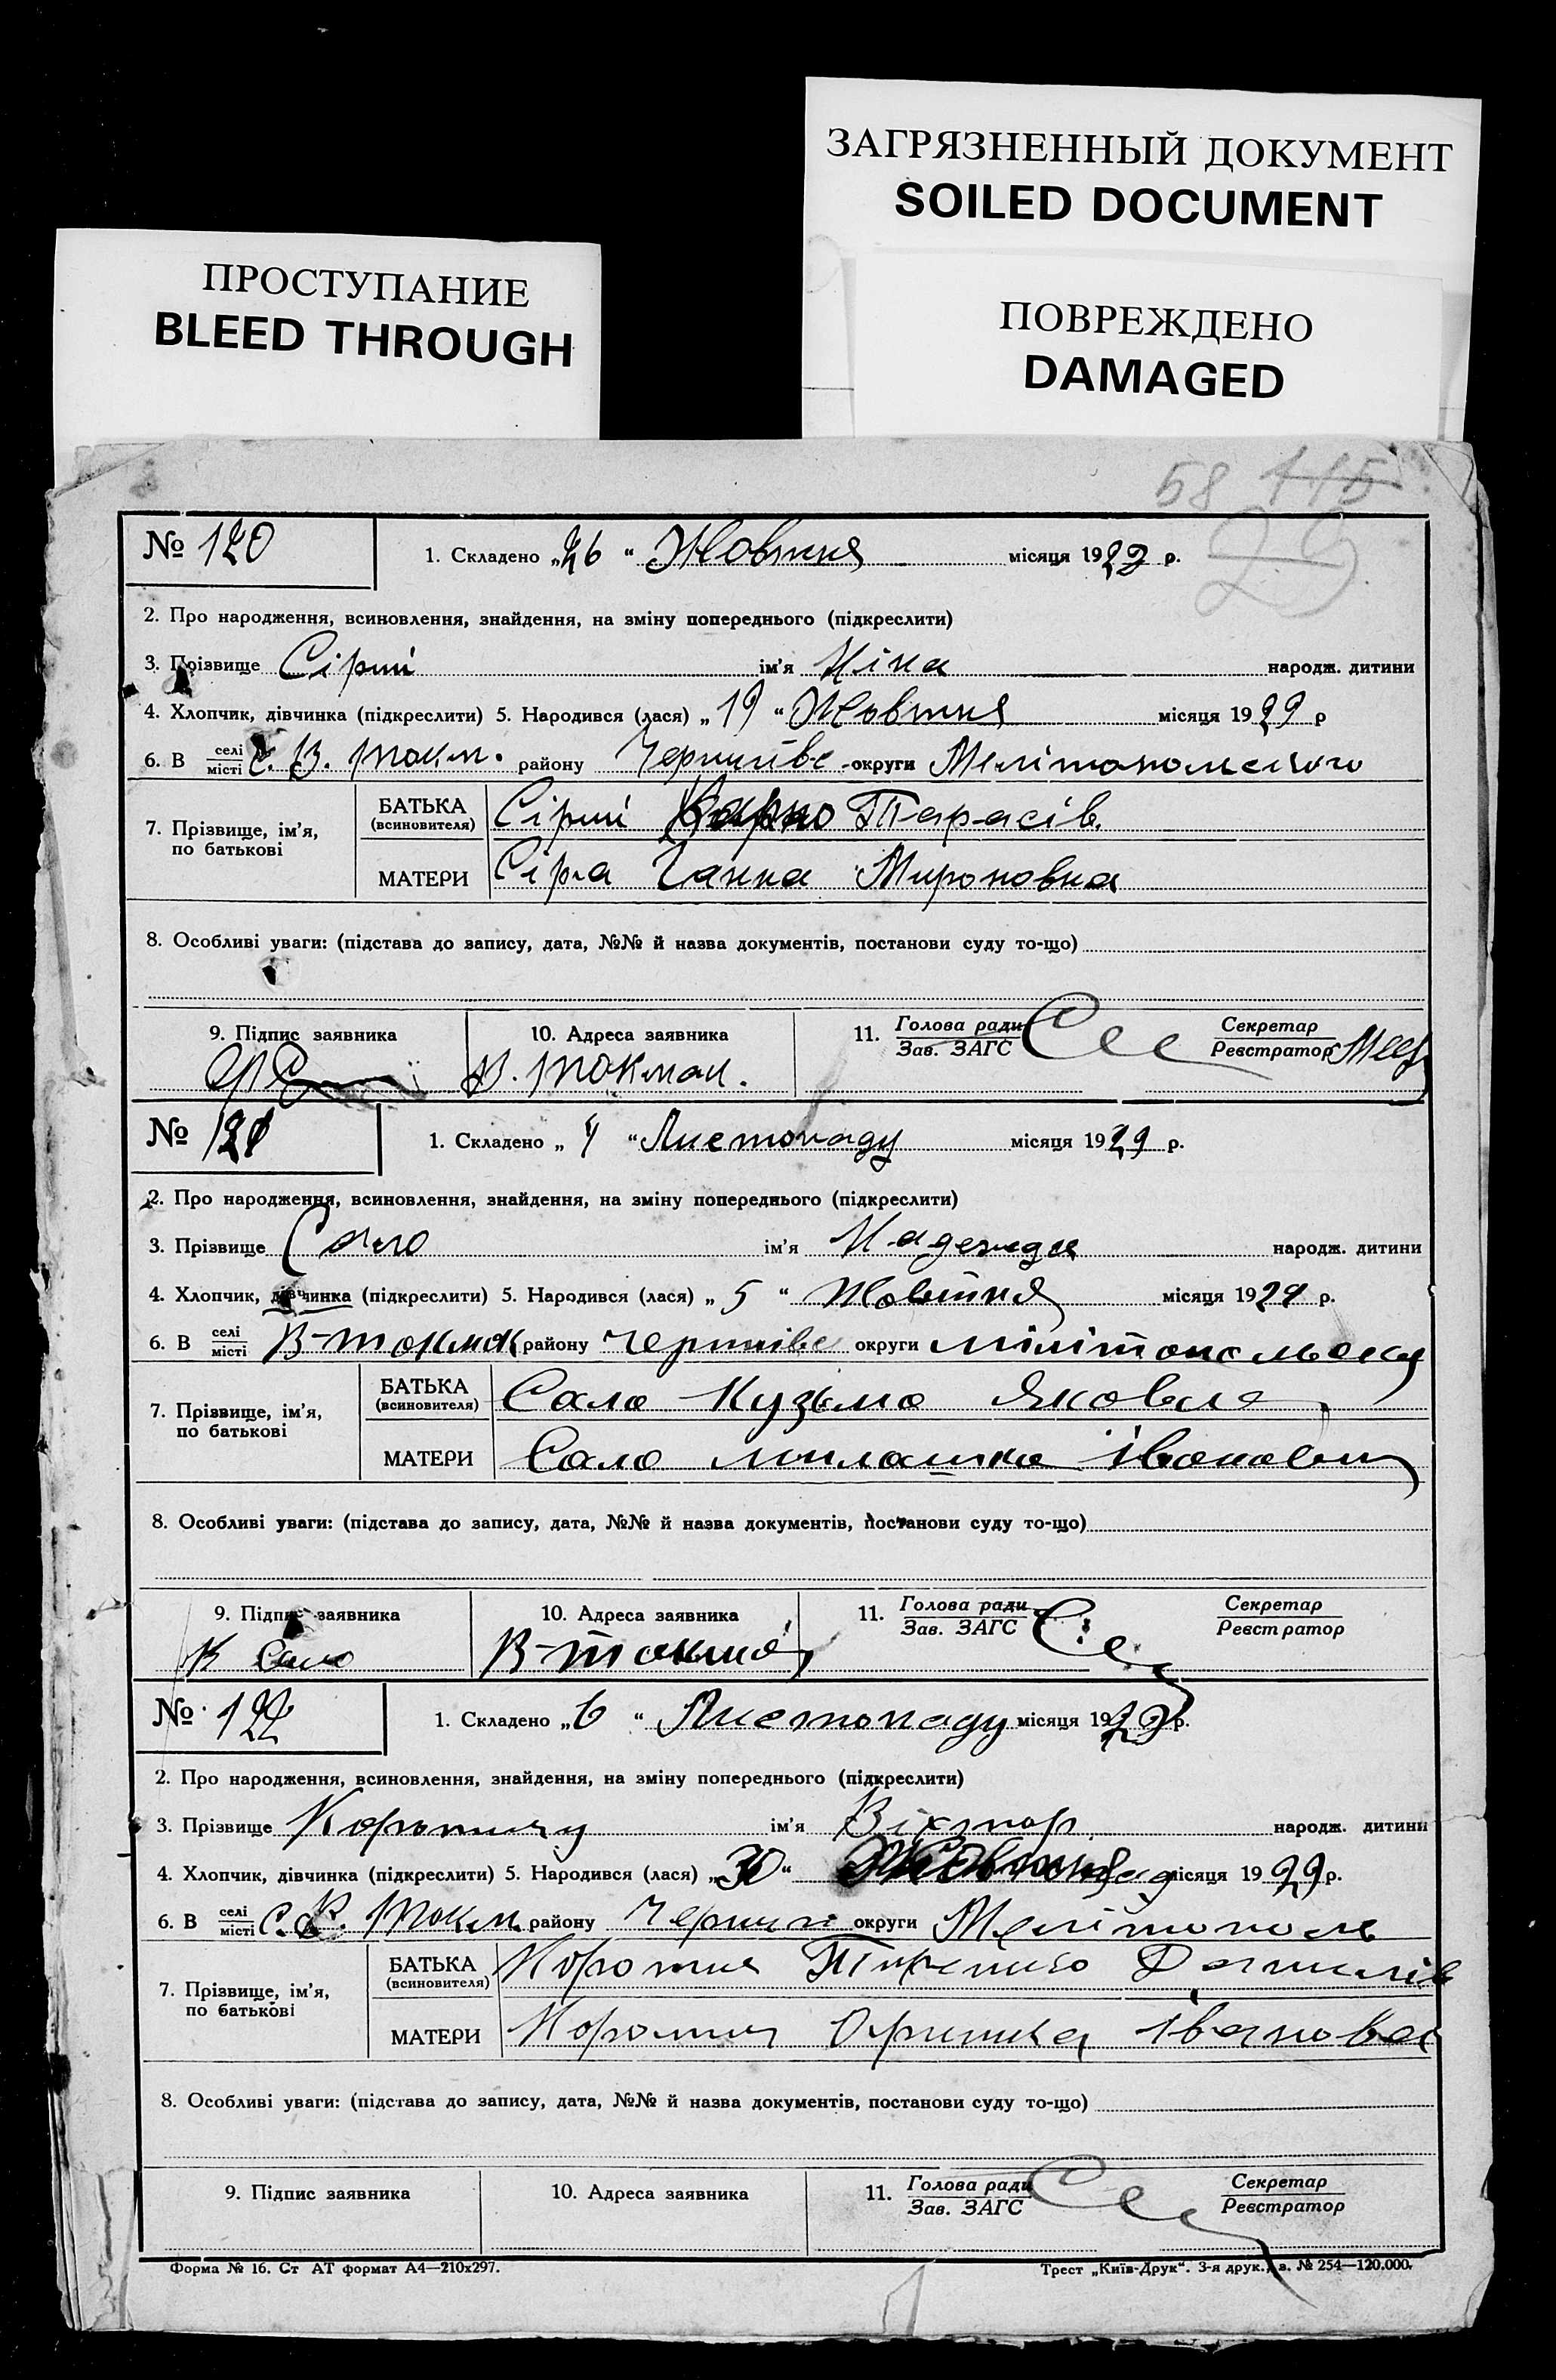 ЗАГРЯЗНЕННЫЙ ДОКУМЕНТ
SOILED DOCUMENT
ПРОСТУПАНИЕ
BLEED THROUGH
ПОВРЕЖДЕНО
DAMAGED
58 115
29
№ 120 1. Складено „26 “ Жовтня місяця 1929 р.
2. Про народження, всиновлення, знайдення, на зміну попереднього (підкреслити)
3. Прізвище Сірий ім’я Ніна народж. дитини
4. Хлопчик, дівчинка (підкреслити) 5. Народився (лася) „ 19 “ Жовтня місяця 1929 р
6. В селі місті С. В. Токм. району Чернигівс округи Мелітопольського
7. Прізвище, ім’я, по батькові БАТЬКА (всиновителя) Сірий Карпо Тарасів.
МАТЕРИ Сіра Ганна Мироновна
8. Особливі уваги: (підстава до запису, дата, №№ й назва документів, постанови суду то-що)
9. Підпис заявника 10. Адреса заявника 11. Голова ради Зав. ЗАГС Секретар Реєстратор
В. Токмак.
№ 121 1. Складено „ 4 “ Листопаду місяця 1929 р.
2. Про народження, всиновлення, знайдення, на зміну попереднього (підкреслити)
3. Прізвище Сало ім’я Надежда народж. дитини
4. Хлопчик, дівчинка (підкреслити) 5. Народився (лася) „ 5 “ Жовтня місяця 1929 р.
6. В селі місті В-Токмак району Чернігівс округи Мілітопольску
7. Прізвище, ім’я, по батькові БАТЬКА (всиновителя) Сало Кузьма Яковле
МАТЕРИ Сало Милашка Івановн
8. Особливі уваги: (підстава до запису, дата, №№ й назва документів, постанови суду то-що)
9. Підпис заявника 10. Адреса заявника 11. Голова ради Зав. ЗАГС Секретар Реєстратор
К Сало В-Токмак
№ 122 1. Складено „ 6 “ Листопаду місяця 1929 р.
2. Про народження, всиновлення, знайдення, на зміну попереднього (підкреслити)
3. Прізвище ім’я Віхтор народж. дитини
4. Хлопчик, дівчинка (підкреслити) 5. Народився (лася) „ 30 “ Жовтня місяця 1929 р.
6. В селі місті С. В. Токм. району Черниги округи Мелітополь
7. Прізвище, ім’я, по батькові БАТЬКА (всиновителя) Данилів
МАТЕРИ Оришка Івановна
8. Особливі уваги: (підстава до запису, дата, №№ й назва документів, постанови суду то-що)
9. Підпис заявника 10. Адреса заявника 11. Голова ради Зав. ЗАГС Секретар Реєстратор
Форма № 16. Ст АТ формат А4—210х297. Трест „Київ-Друк“. 3-я друк., з. № 254—120.000.